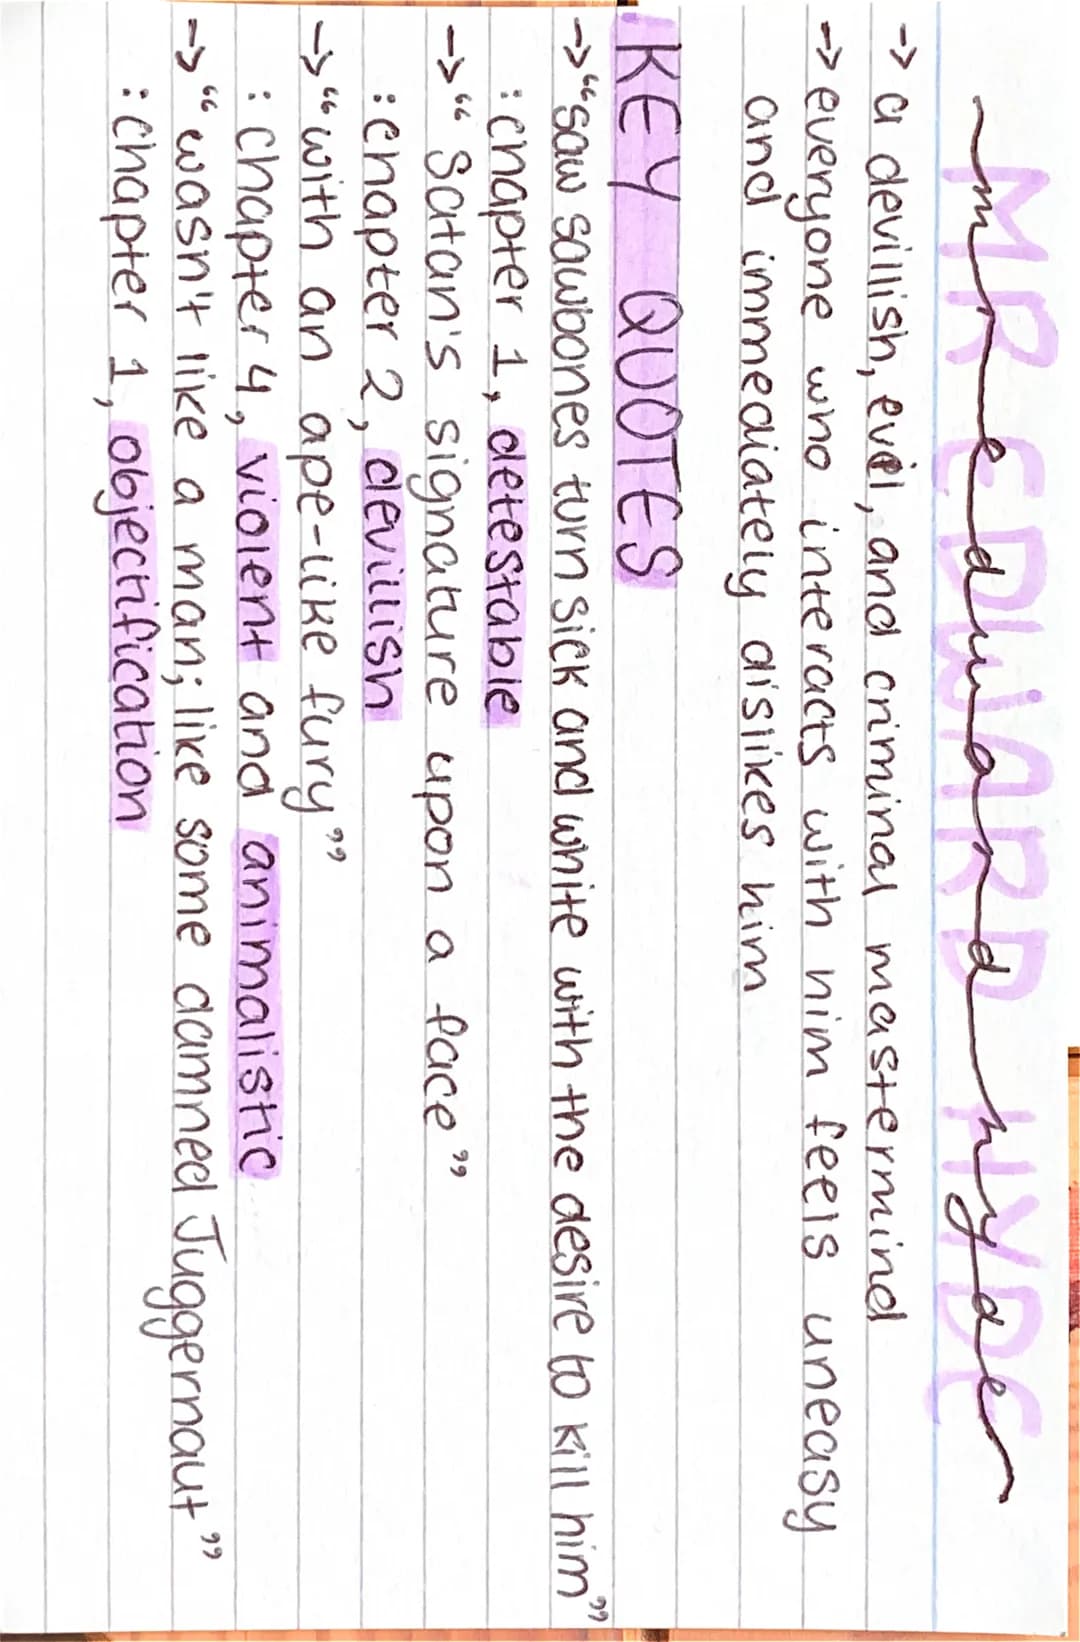 MR EDWARD HYDE
mr edward hyde
-> a devillish, evil, and criminal mastermind
-> everyone who interacts with him feels uneasy
and immediately dislikes him
KEY QUOTES
-> "saw sawbones turn sick and white with the desire to kill him"
: chapter 1, detestable
-> "Satan's signature upon a face"
: chapter 2, devillish
-> "with an ape-like fury"
: chapter 4, violent and animalistic
-> "wasn't like a man; like some damned Juggernaut"
: chapter 1, objectification